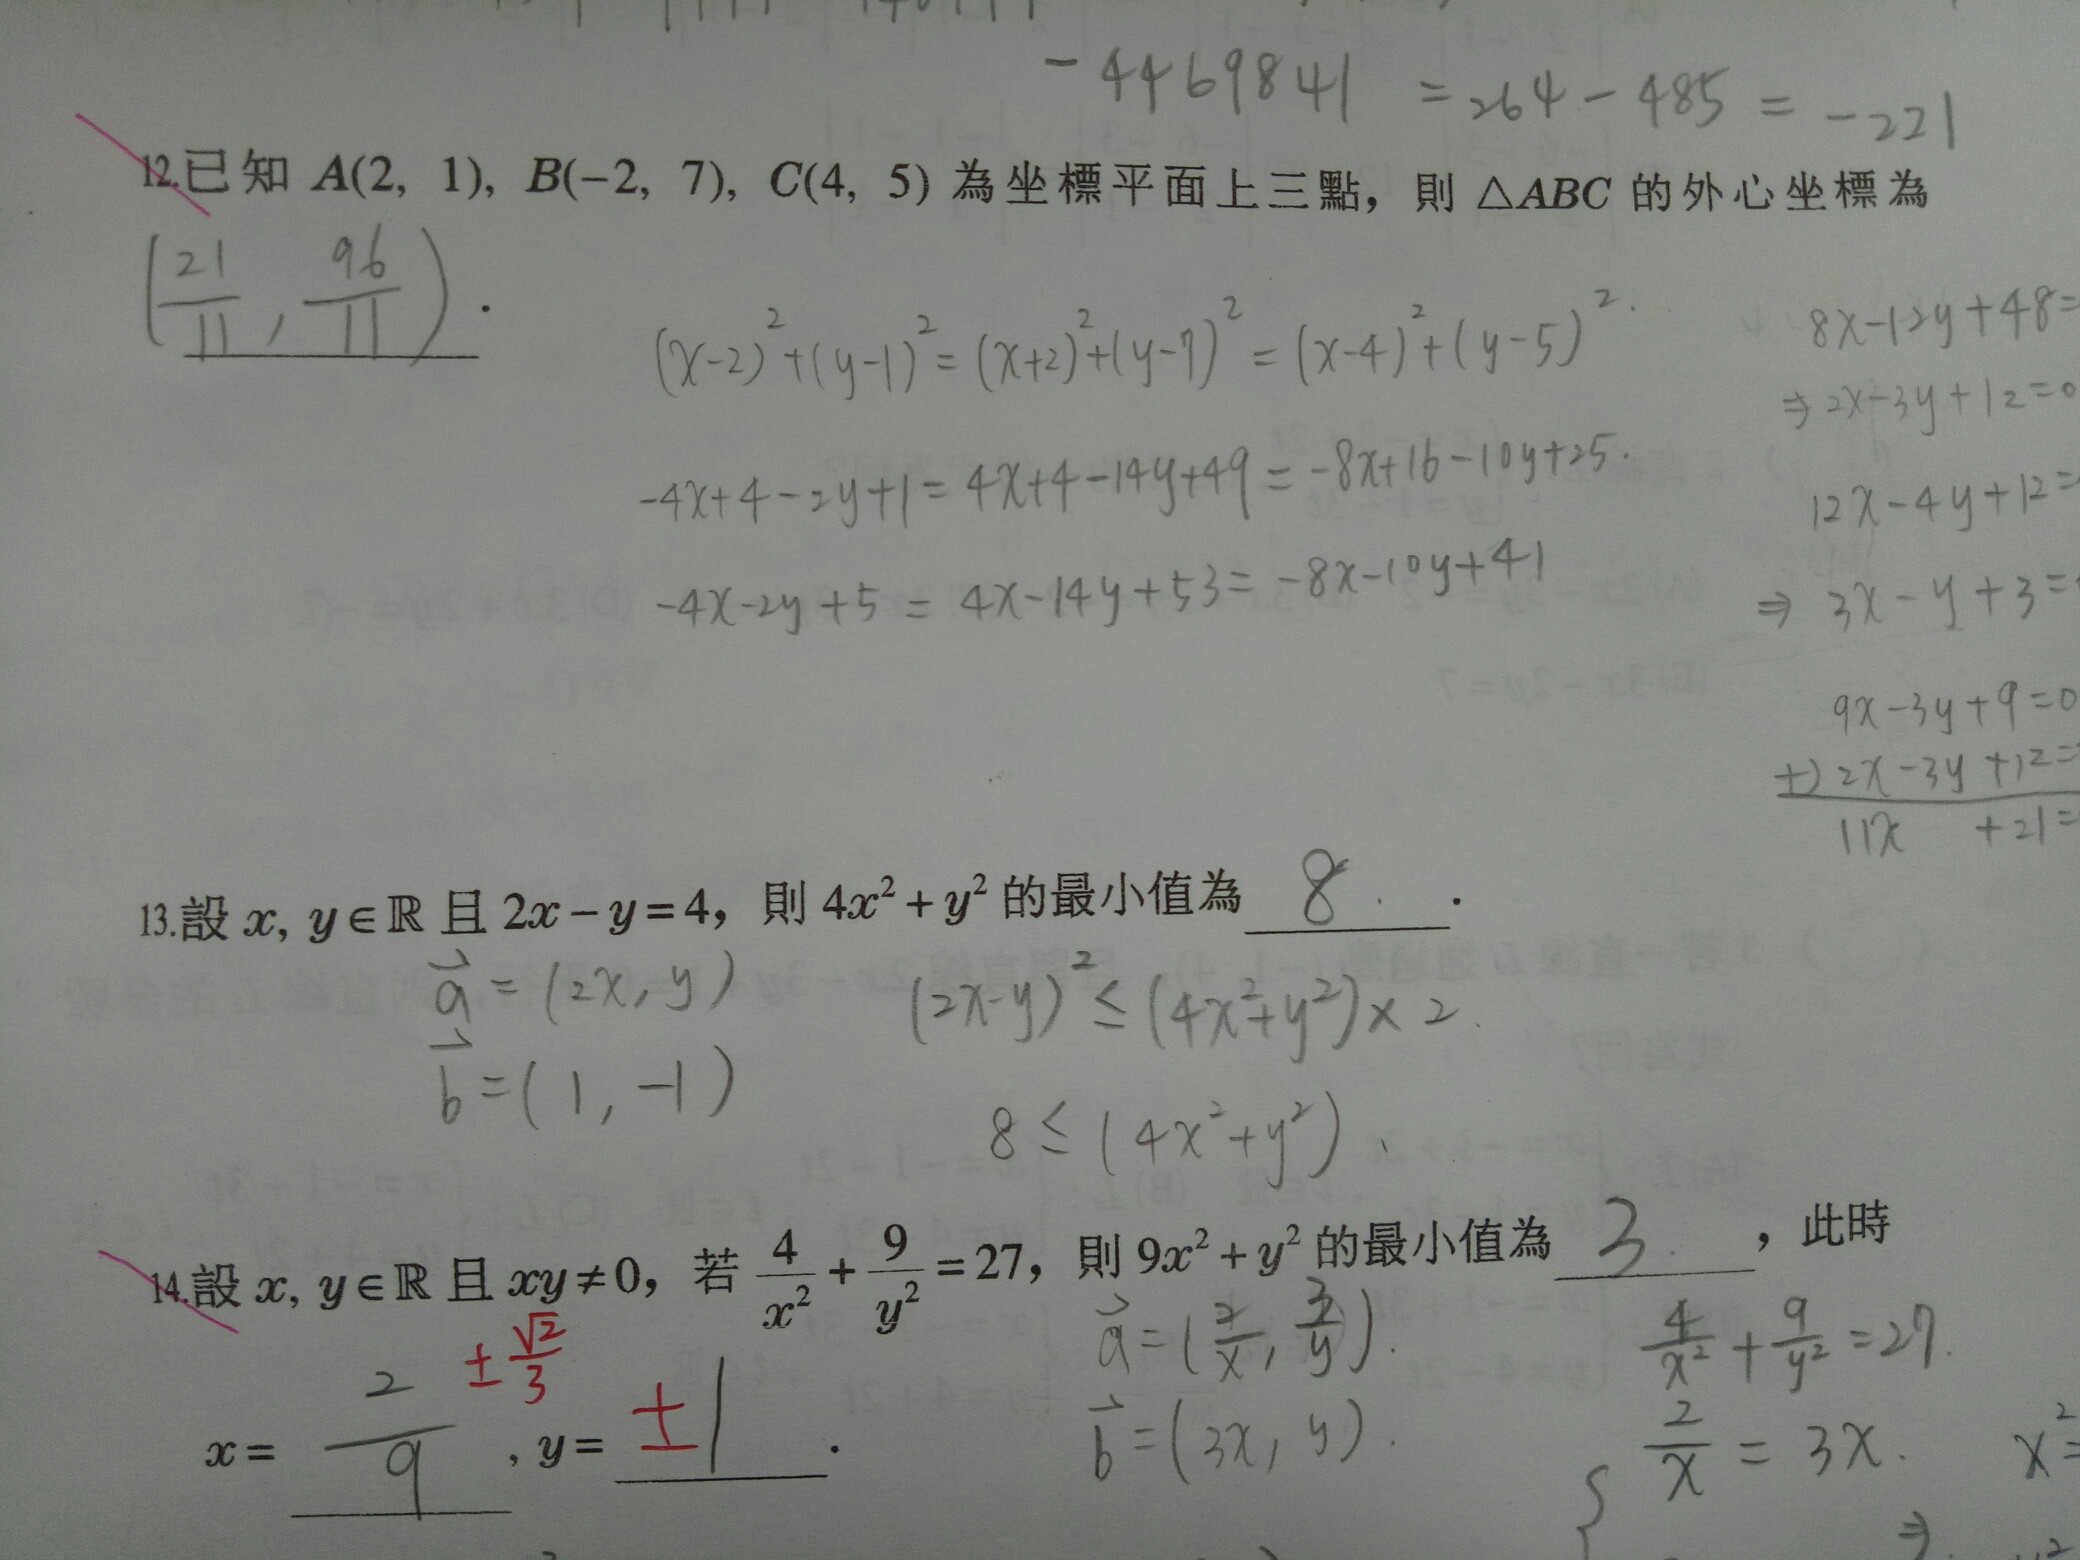 -4469841 =264-485=-221
12.已知 A(2, 1), B(-2, 7), C(4, 5) 為坐標平面上三點，則 △ABC 的外心坐標為
(21/11, 96/11).
(x-2)²+(y-1)²=(x+2)²+(y-7)²=(x-4)²+(y-5)².
-4x+4-2y+1=4x+4-14y+49=-8x+16-10y+25.
-4x-2y+5=4x-14y+53=-8x-10y+41
8x-12y+48=
⇒2x-3y+12=0
12x-4y+12=
⇒ 3x-y+3=
9x-3y+9=0
+)2x-3y+12=
11x +21=
13.設 x, y∈ℝ 且 2x-y=4，則 4x²+y² 的最小值為 8.
a=(2x, y) (2x-y)²≤(4x²+y²)×2.
b=(1, -1)
8≤(4x²+y²).
14.設 x, y∈ℝ 且 xy≠0，若 4/x²+9/y²=27，則 9x²+y² 的最小值為 3.，此時
x= 2/9 ±√2/3 , y= ±1 .
a=(2/x, 3/y).
b=(3x, y).
4/x²+9/y²=27.
2/x=3x. x²=
⇒